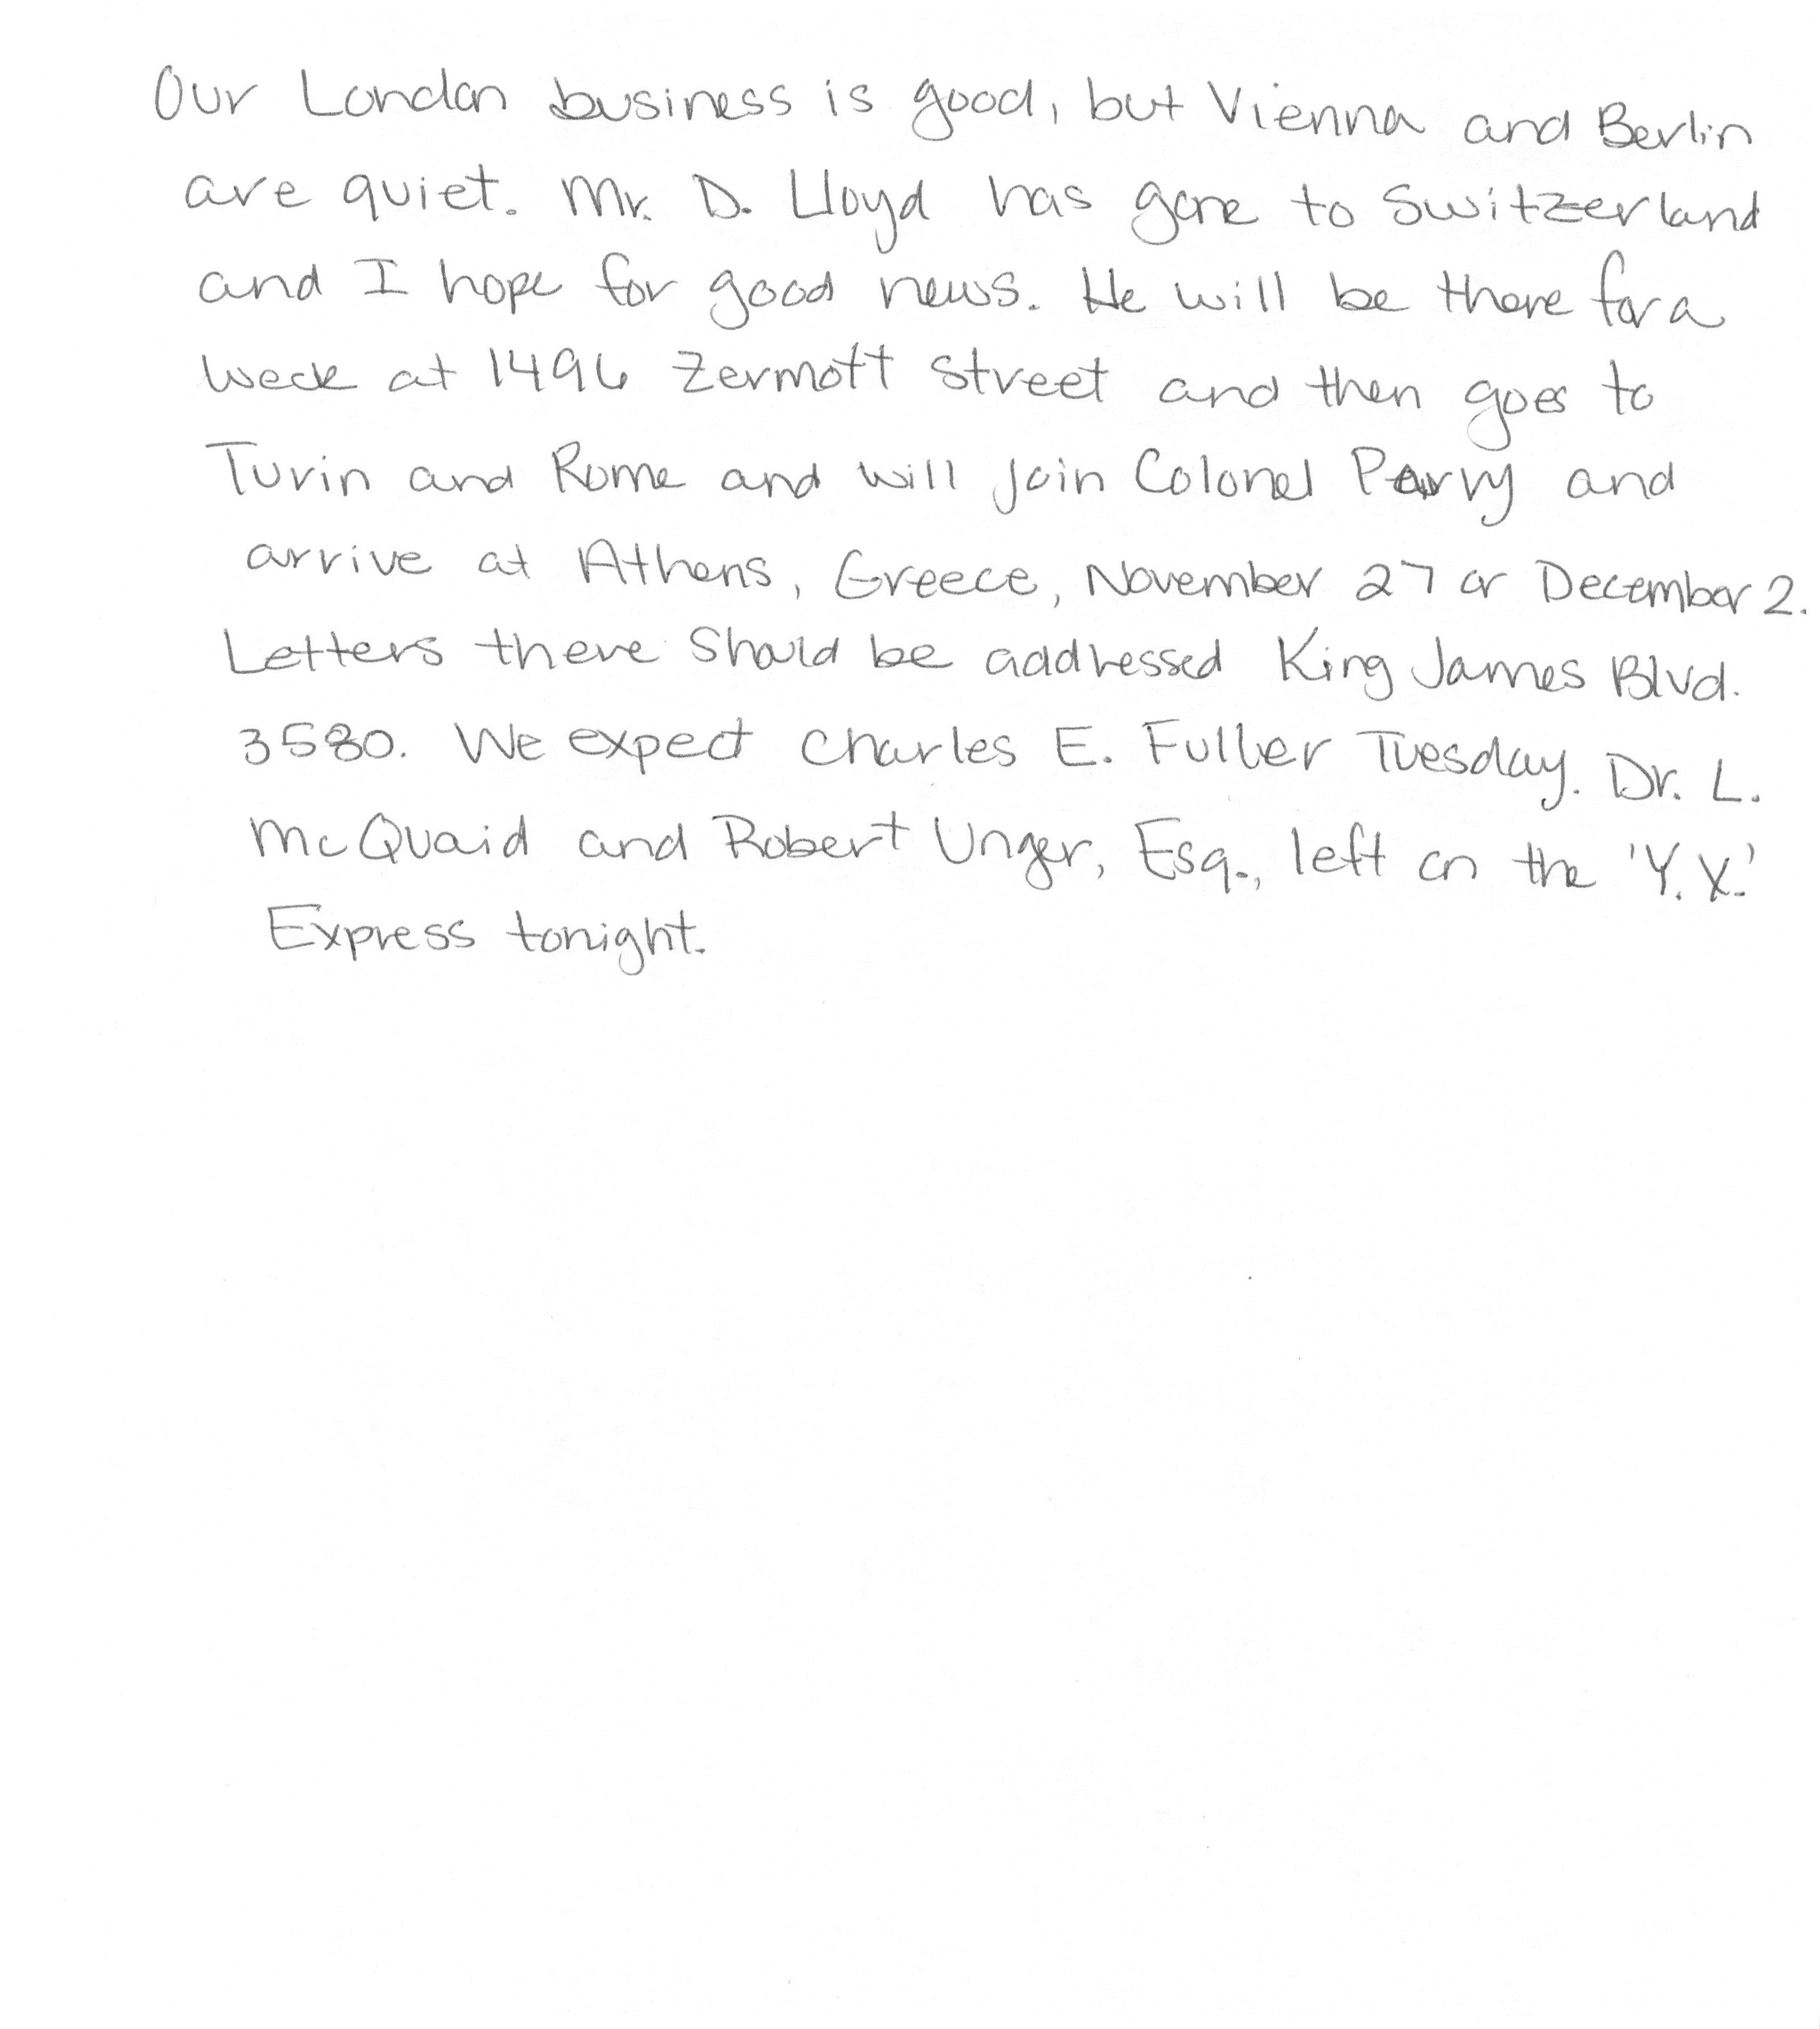 Our London business is good, but Vienna and Berlin
are quiet. Mr. D. Lloyd has gone to Switzerland
and I hope for good news. He will be there for a
week at 1496 Zermott Street and then goes to
Turin and Rome and will join Colonel Parry and
arrive at Athens, Greece, November 27 or December 2.
Letters there should be addressed King James Blvd.
3580. We expect Charles E. Fuller Tuesday. Dr. L.
McQuaid and Robert Unger, Esq., left on the 'Y.X.'
Express tonight.